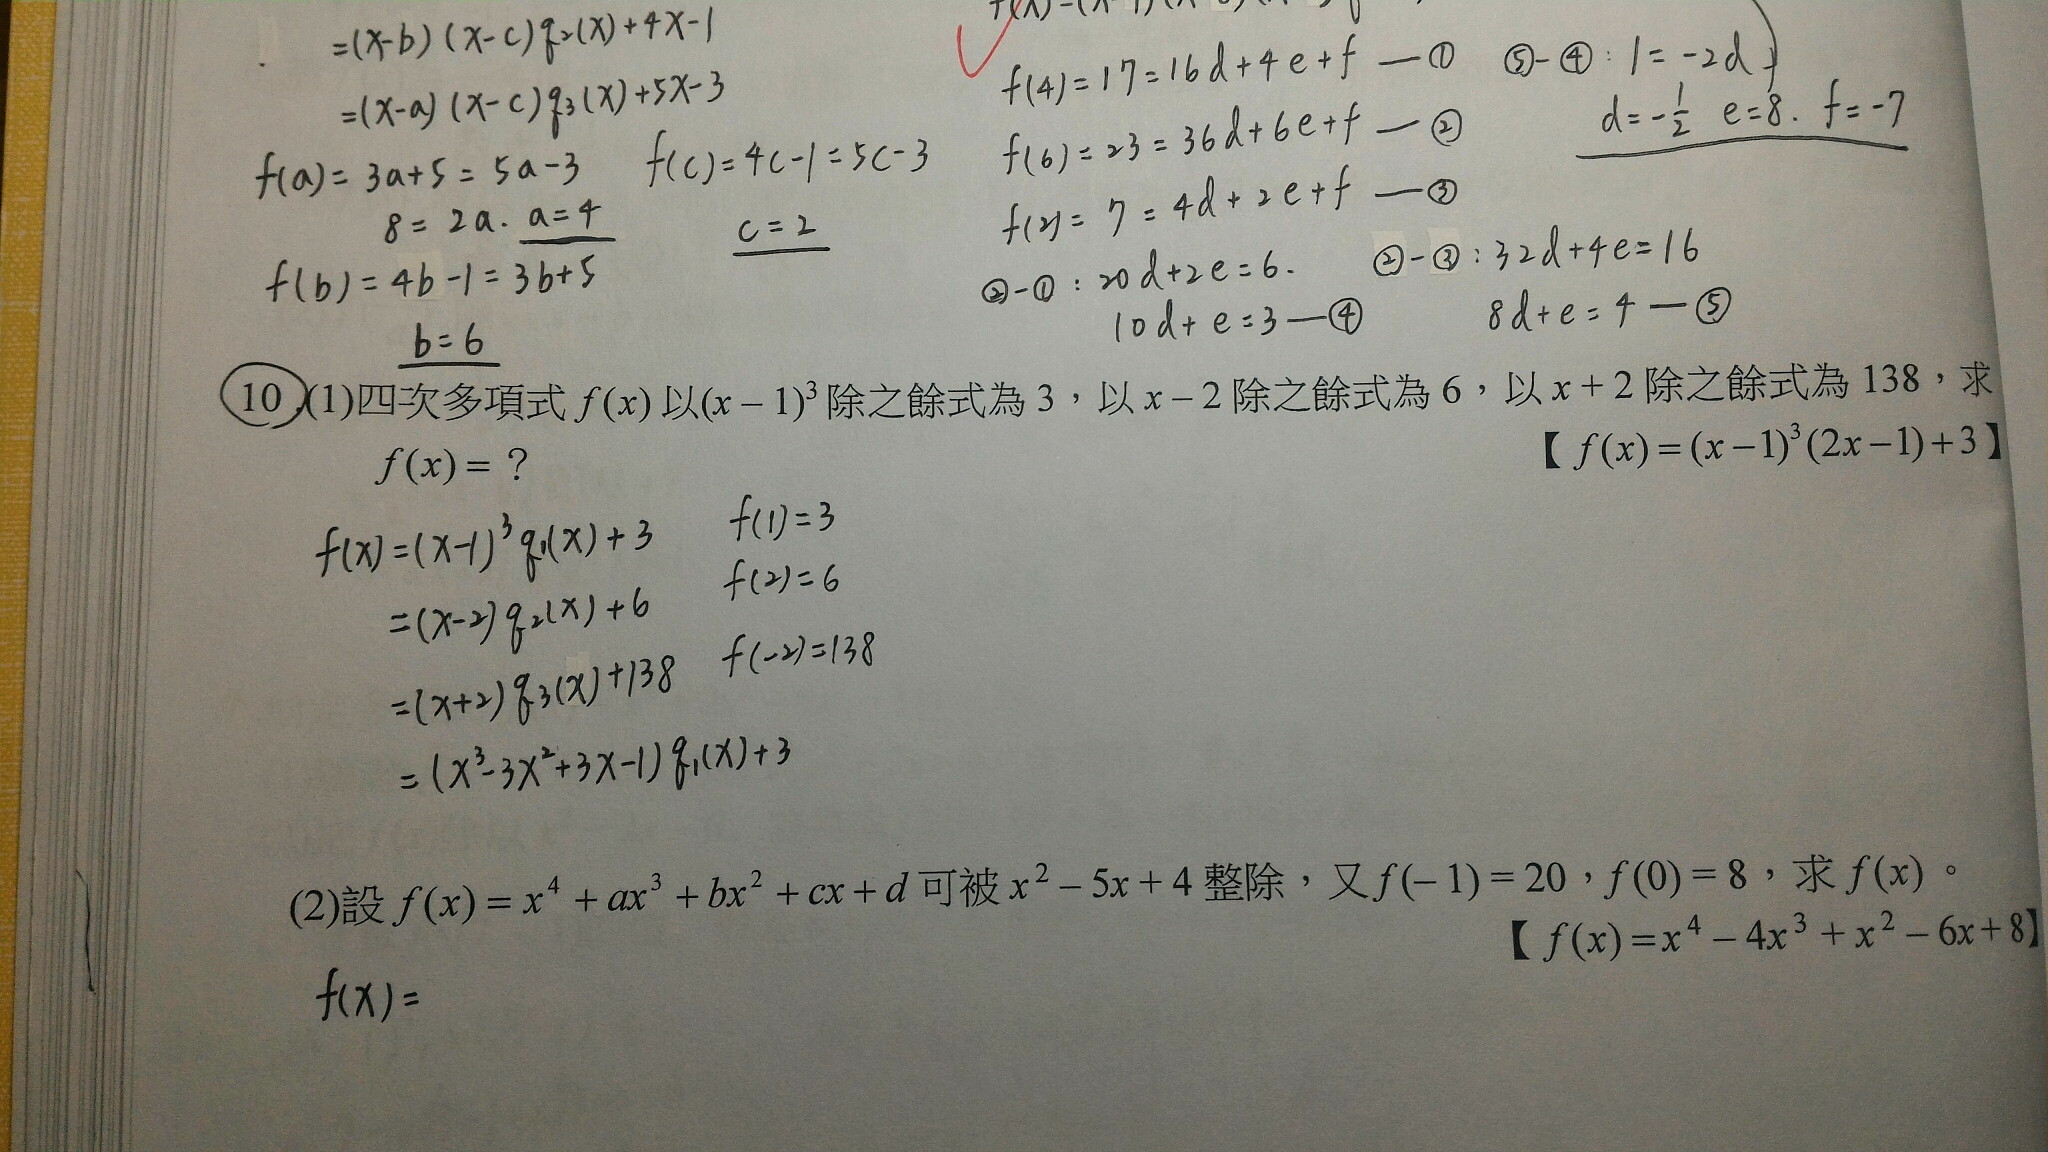 =(x-b)(x-c)q₂(x)+4x-1
=(x-a)(x-c)q₃(x)+5x-3
f(a)=3a+5=5a-3
8=2a. a=4
f(b)=4b-1=3b+5
b=6
f(c)=4c-1=5c-3
c=2
f(4)=17=16d+4e+f —①
f(6)=23=36d+6e+f —②
f(2)=7=4d+2e+f —③
②-①:20d+2e=6.
10d+e=3—④
②-③:32d+4e=16
8d+e=4—⑤
⑤-④:1=-2d
d=-1/2 e=8. f=-7
10.(1)四次多項式 f(x) 以(x－1)³ 除之餘式為 3，以 x－2 除之餘式為 6，以 x＋2 除之餘式為 138，求
f(x)=？
【 f(x)=(x－1)³(2x－1)+3】
f(x)=(x-1)³q₁(x)+3
=(x-2)q₂(x)+6
=(x+2)q₃(x)+138
=(x³-3x²+3x-1)q₁(x)+3
f(1)=3
f(2)=6
f(-2)=138
(2)設 f(x)=x⁴+ax³+bx²+cx+d 可被 x²－5x+4 整除，又 f(－1)=20，f(0)=8，求 f(x)。
【 f(x)=x⁴－4x³+x²－6x+8】
f(x)=